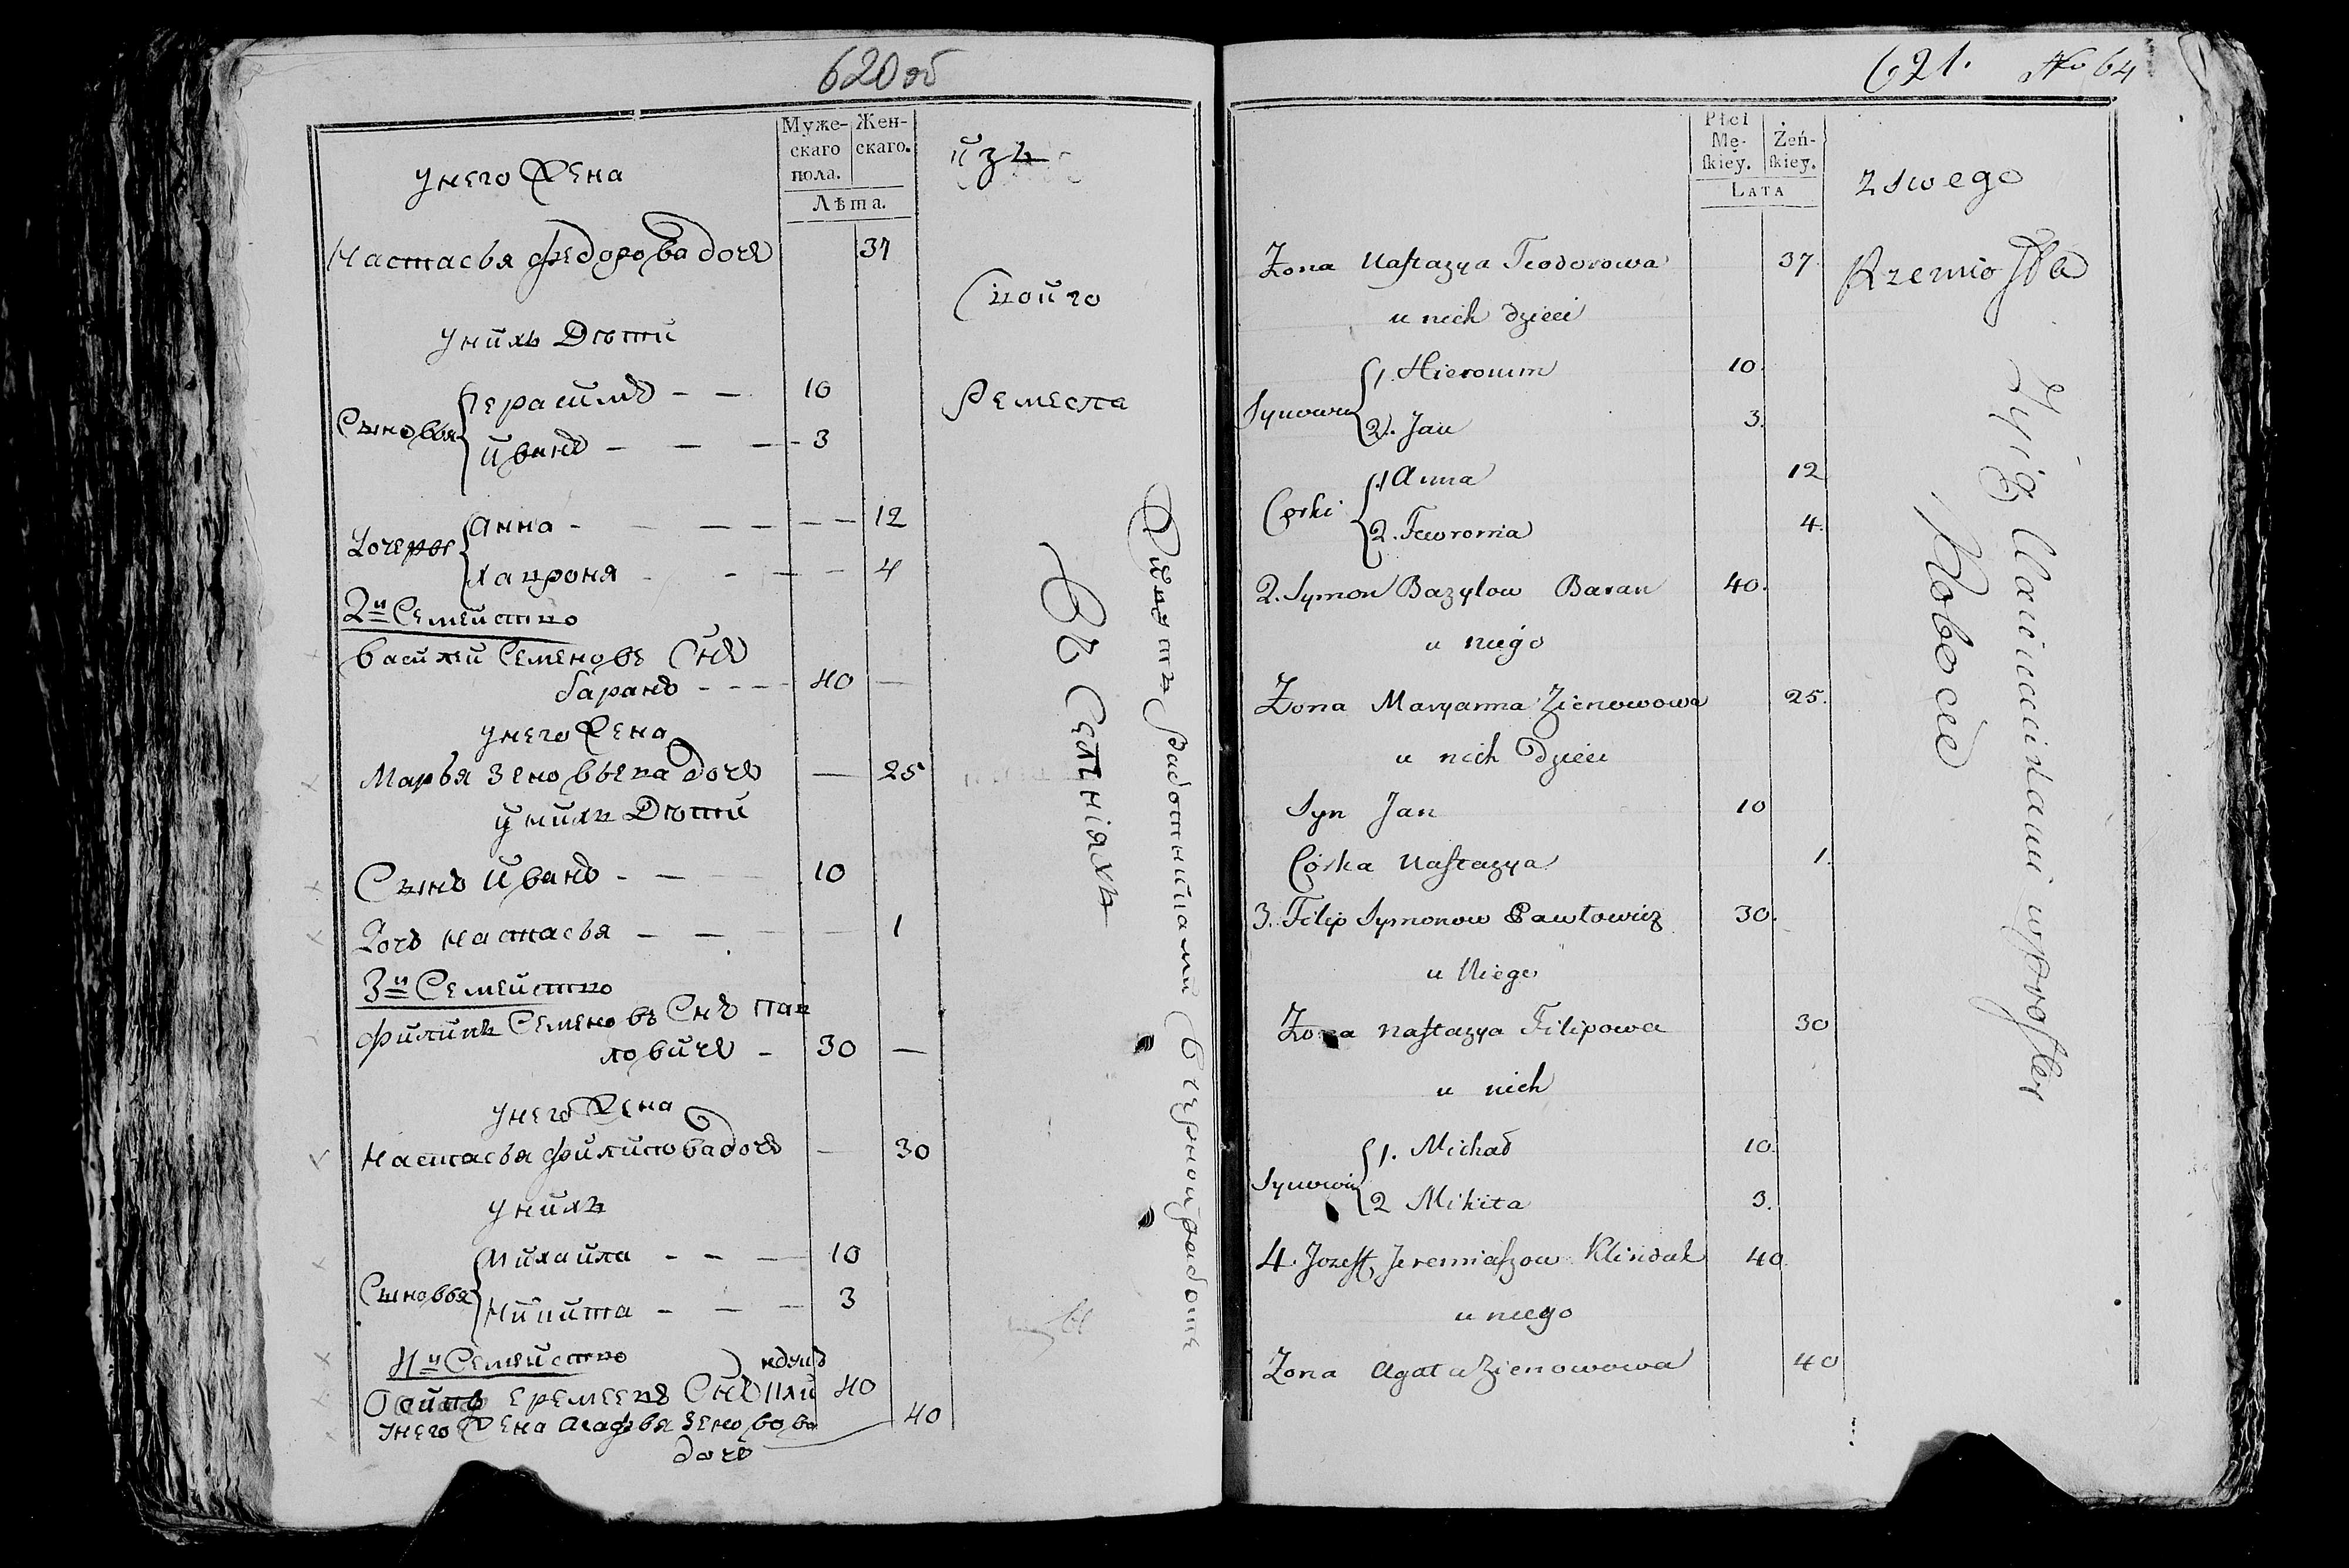 620 об
Муже-
скаго
пола.
Жен-
скаго.
Лѣта.
унего Жена
Настасья Федорова дочь 37
унихъ Дѣти
Сыновья
Герасимъ - - 10
Иванъ - - - 3
Дочеры
Анна - - - - - 12
Хавроня - - - - 4
2й Семейство
Василей Семеновъ Снъ
баранъ - - - 40 -
унего Жена
Марья Зеновьева дочь - 25
унихъ Дѣти
Сынъ Иванъ - - - 10
Дочь Настасья - - - - 1
3й Семейство
Филипъ Семеновъ Снъ пав
ловичъ - 30 -
унего Жена
Настасья Филипова дочь - 30
унихъ
Сыновья
Михайла - - - 10
Никита - - - 3
4й Семейство
Осипъ Еремеевъ Снъ кли 40
ндукъ
унего Жена Агафья Зеновова 40
дочь
изъ
своиго
Ремесла
Живутъ работницами Счерной работе
Въ Селѣніяхъ
621. No 64
Płci
Mę-
ſkiey.
Żeń-
ſkiey.
LATA
Zona Naſtazya Teodorowa 37
u nich dzieci
Synowie
1. Hieronim 10.
2. Jan 3.
Corki
1 Anna 12
2. Fewronia 4.
2. Symon Bazylow Baran 40.
u niego
Zona Maryanna Zienowowa 25.
u nich Dzieci
Syn Jan 10
Córka Naſtazya 1.
3. Filip Symonow Pawłowicz 30.
u Niego
Zona Naſtazya Filipowa 30
u nich
Synowie
1. Michał 10.
2 Mikita 3.
4. Jozeff Jeremiaſzow Klinduk 40
u niego
Zona Agata Zienowowa 40
z swego
Rzemioſła
Żyią
wproſtey
Robocie